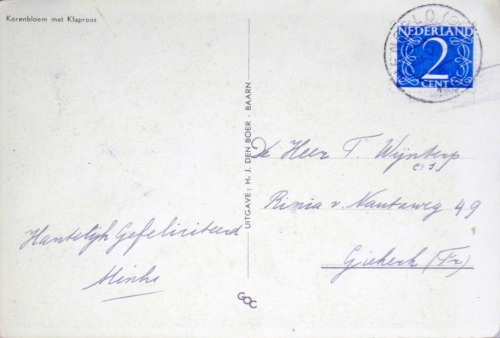 Korenbloem met Klaproos
NEDERLAND
2
CENT
UITGAVE: H. J. DEN BOER - BAARN
De Heer T. Wijnterp
e.s.
Rinia v. Nautaweg 49
(Fr)
Hartelijk Gefeliciteerd
Minke
GOC